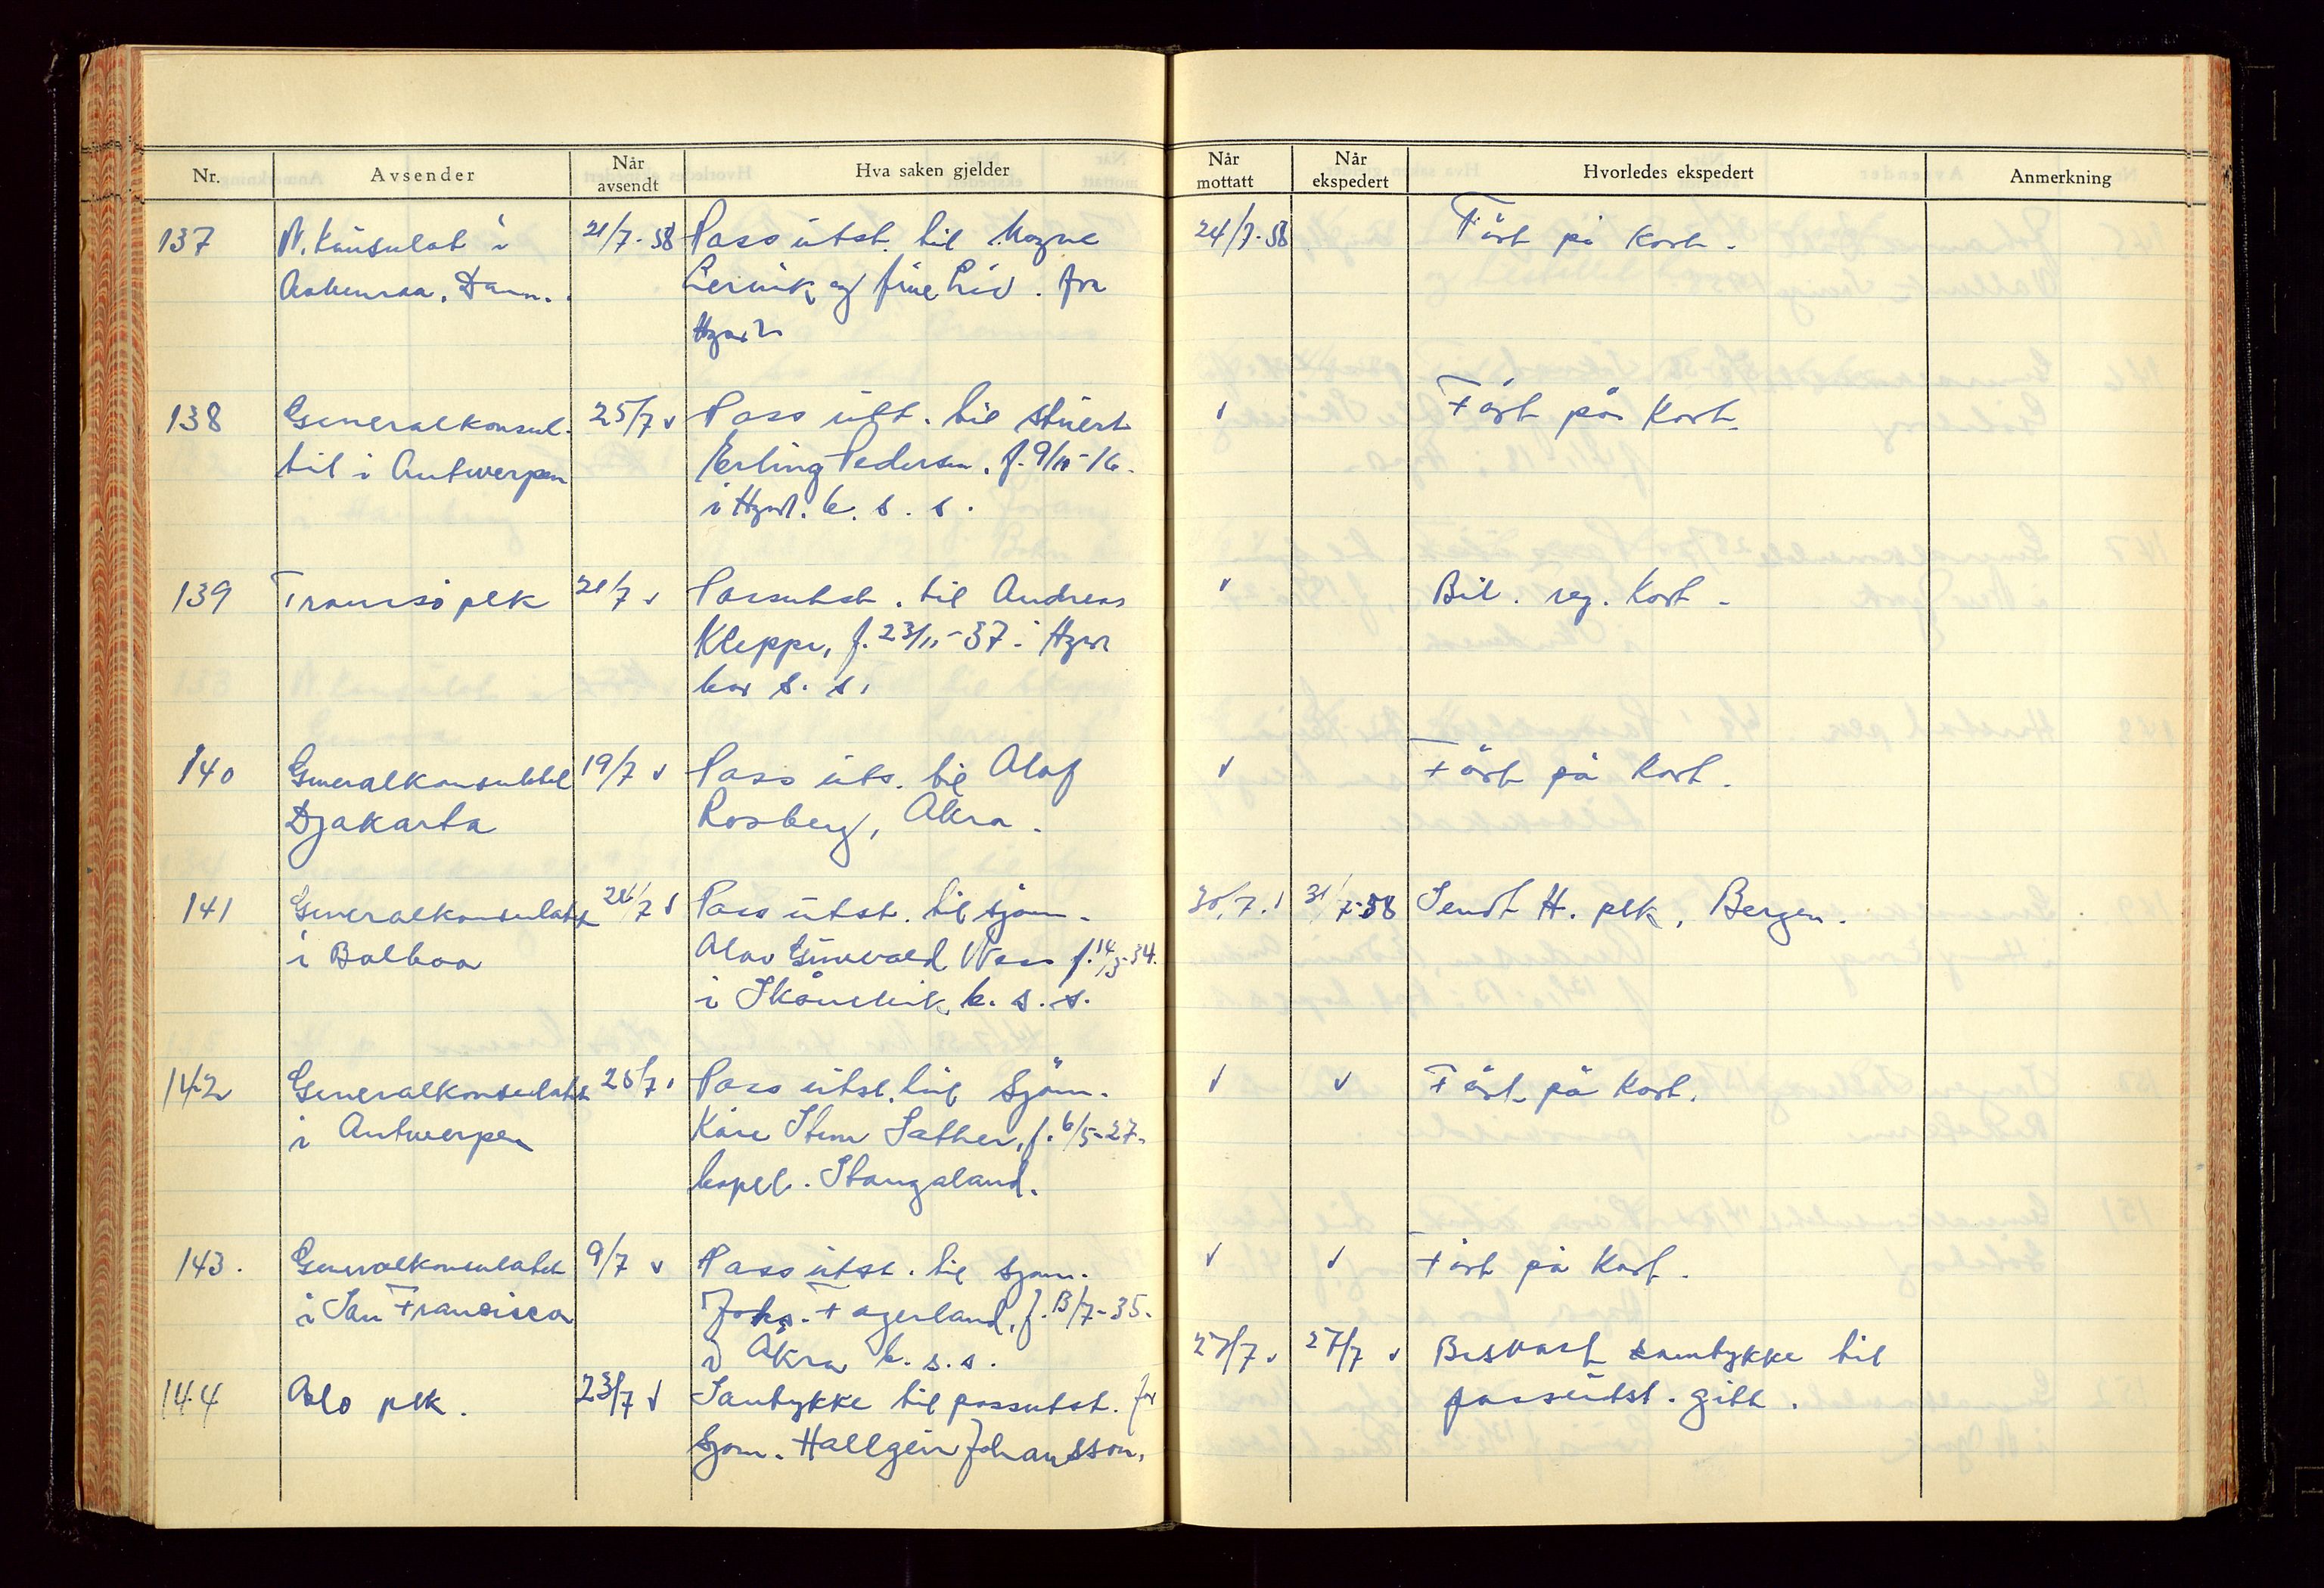 Nr. Avsender Når avsendt Hva saken gjelder Når mottatt Når ekspedert Hvorledes ekspedert Anmerkning
137 N. Konsulat i 21/7-58 Pass utst. til Magne 24/7-58 Ført på kort.
Aabenraa, Danm. og frue Liv. fra
138 Generalkonsul- 25/7 v Pass utst. til stuert v Ført på Kort.
til i Antwerpen Erling Pedersen, f. 9/10-16.
i Hgsd. b. s. s.
139 Tromsø plk 21/7 v Passutst. til Andreas v Bil. reg. Kort.
Kleppe, f. 23/11-37 i Hgsd
bor s. s.
140 Generalkonsulatet 19/7 v Pass uts. til Olaf v Ført på Kort.
Djakarta Rosberg, Åkra.
141 Generalkonsulatet 26/7 v Pass utst. til sjøm. 30/7. v 31/7-58 Sendt H. plk, Bergen.
i Balboa Alav Gunvald Næss f. 14/3-34.
i Skånevik b. s. s.
142 Generalkonsulatet 25/7 v Pass utst. til Sjøm. v v Ført på Kort.
i Antwerpen Kåre Stene Sæther, f. 6/5-27.
bopel. Stangaland.
143. Generalkonsulatet 9/7 v Pass utst. til sjøm. v v Ført på Kort.
i San Francisco Johs. Fagerland, f. 13/7-35.
i Åkra b. s. s.
27/7 v 27/7 v Besvart samtykke til
144 Oslo plk. 23/7 v Samtykke til passutst. for passutst. gitt.
Sjøm. Hallgeir Johansson.